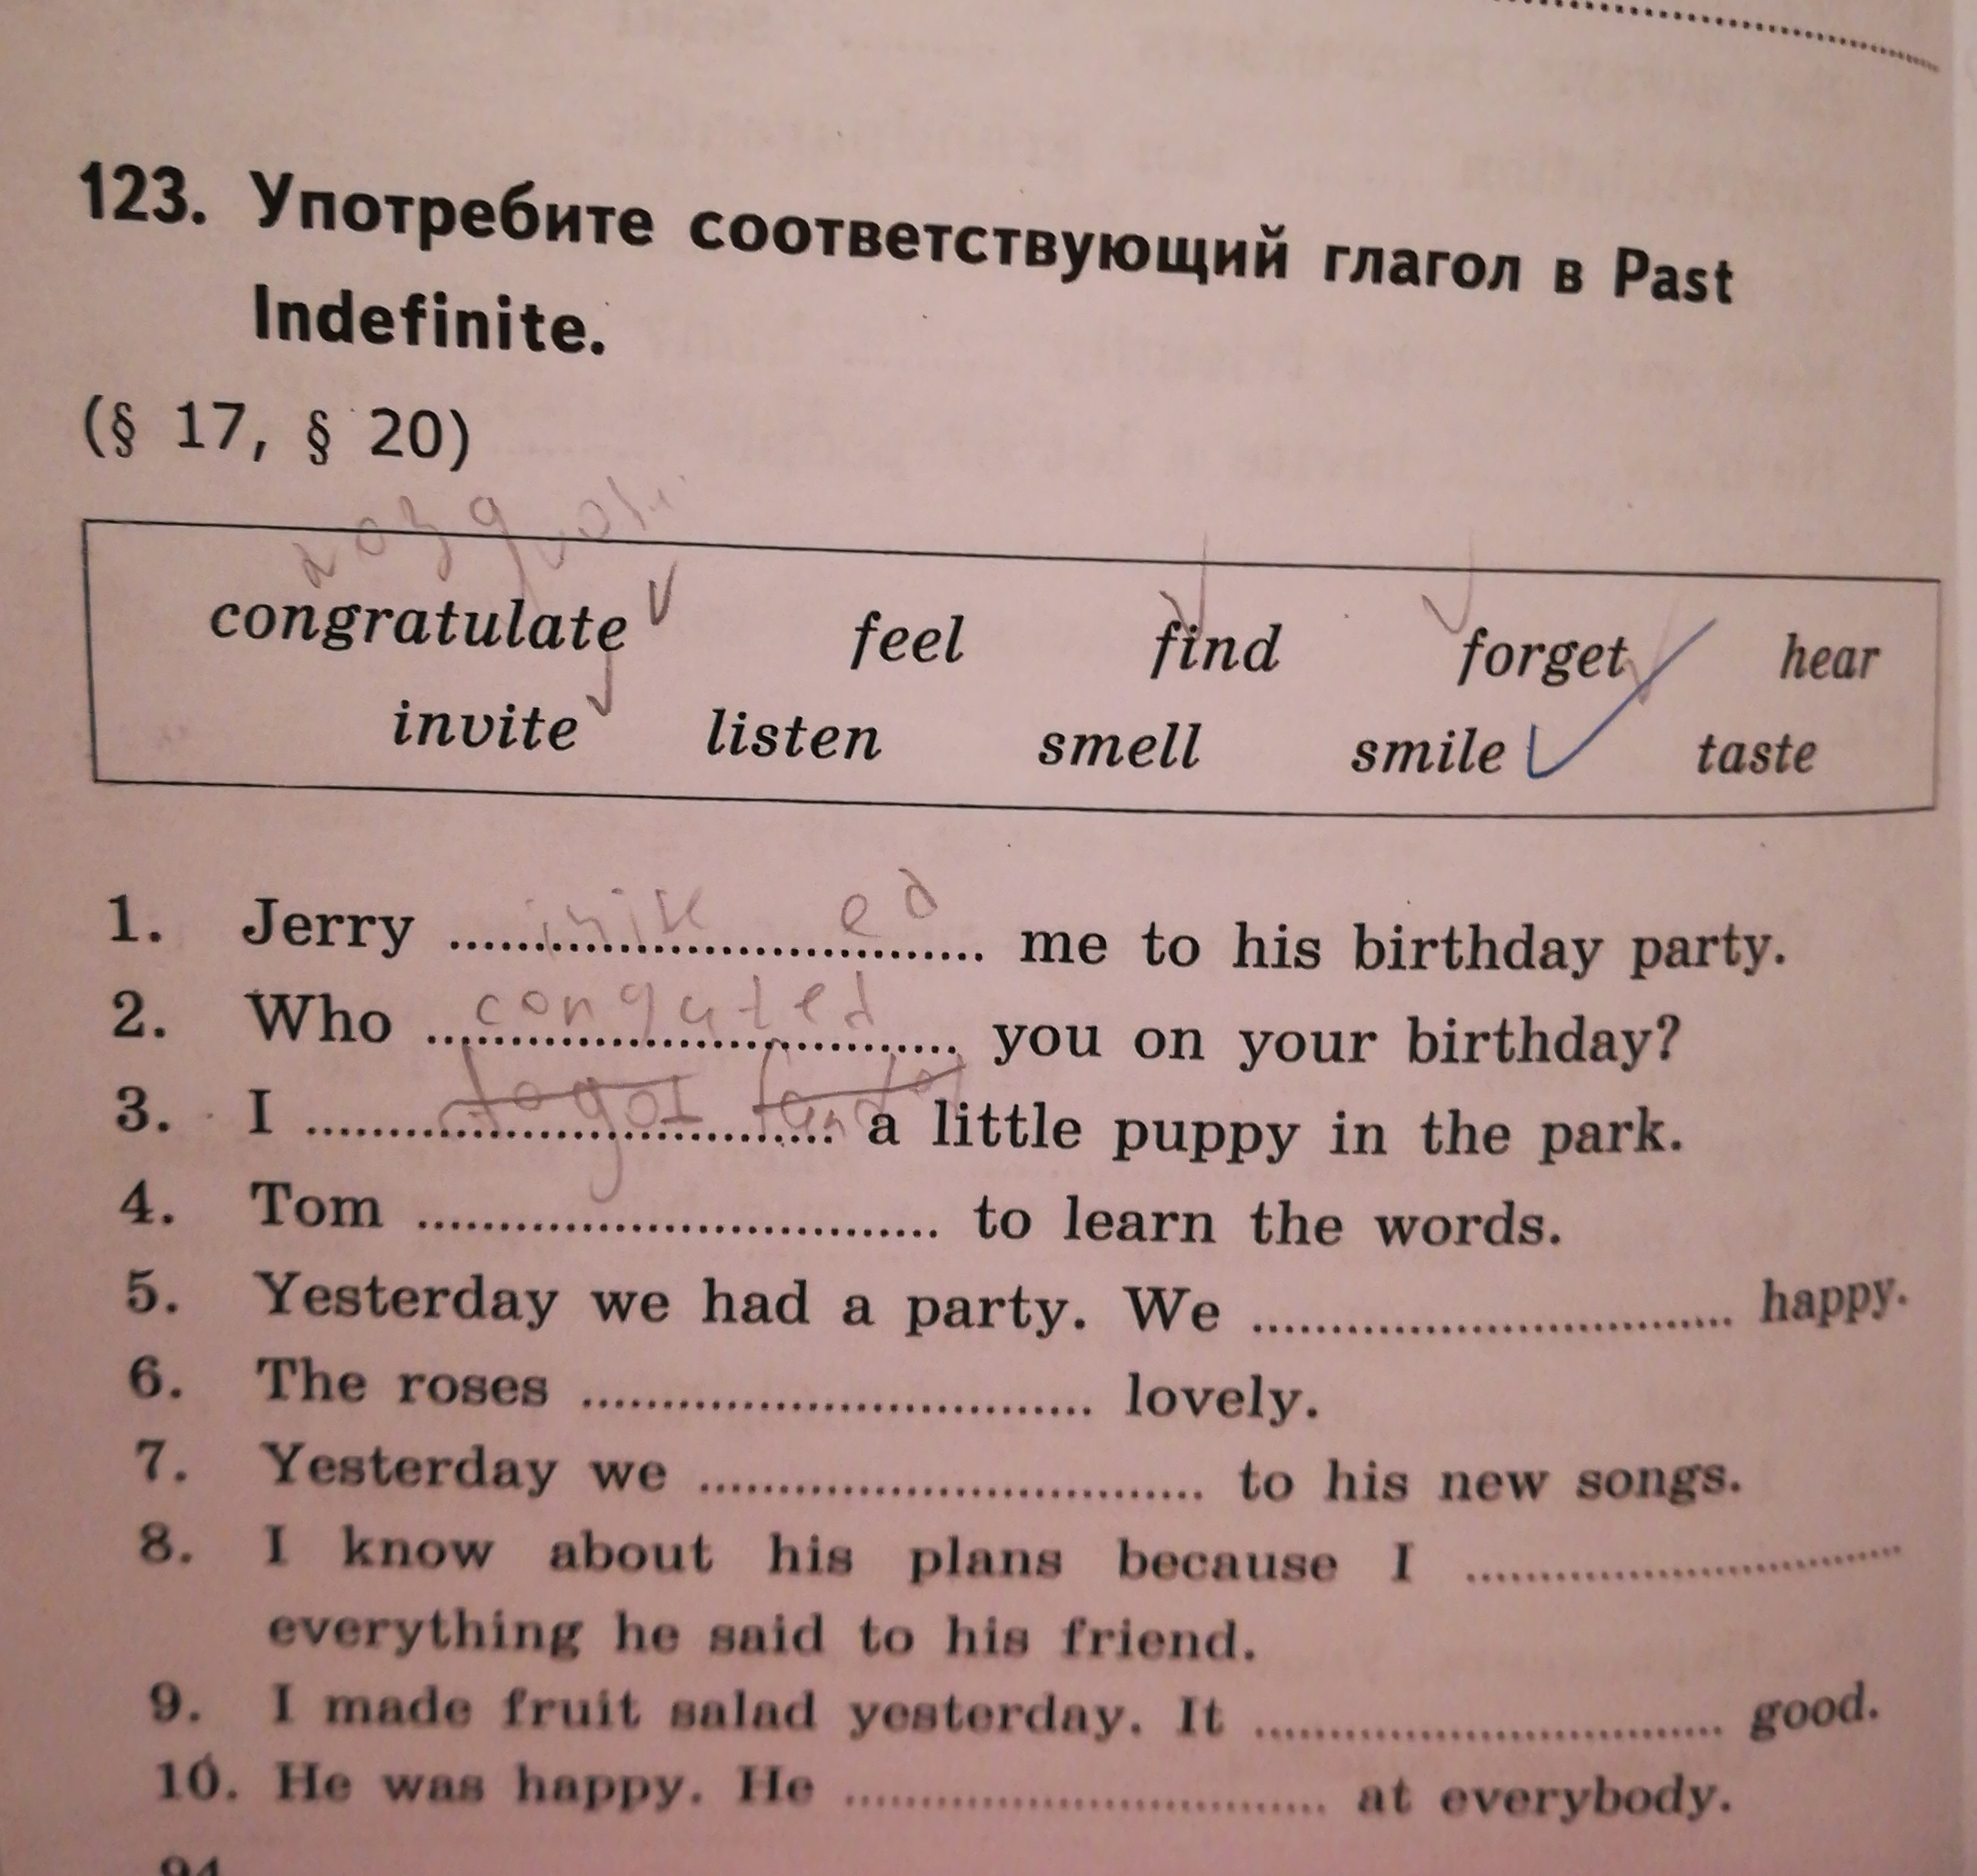 123. Употребите соответствующий глагол в Past
Indefinite.
(§ 17, § 20)
congratulate feel find forget hear
invite listen smell smile taste
ed
1. Jerry .................... me to his birthday party.
congated
2. Who .................... you on your birthday?
3. I .................... a little puppy in the park.
4. Tom .................... to learn the words.
5. Yesterday we had a party. We .................... happy.
6. The roses .................... lovely.
7. Yesterday we .................... to his new songs.
8. I know about his plans because I ....................
everything he said to his friend.
9. I made fruit salad yesterday. It .................... good.
10. He was happy. He .................... at everybody.
94